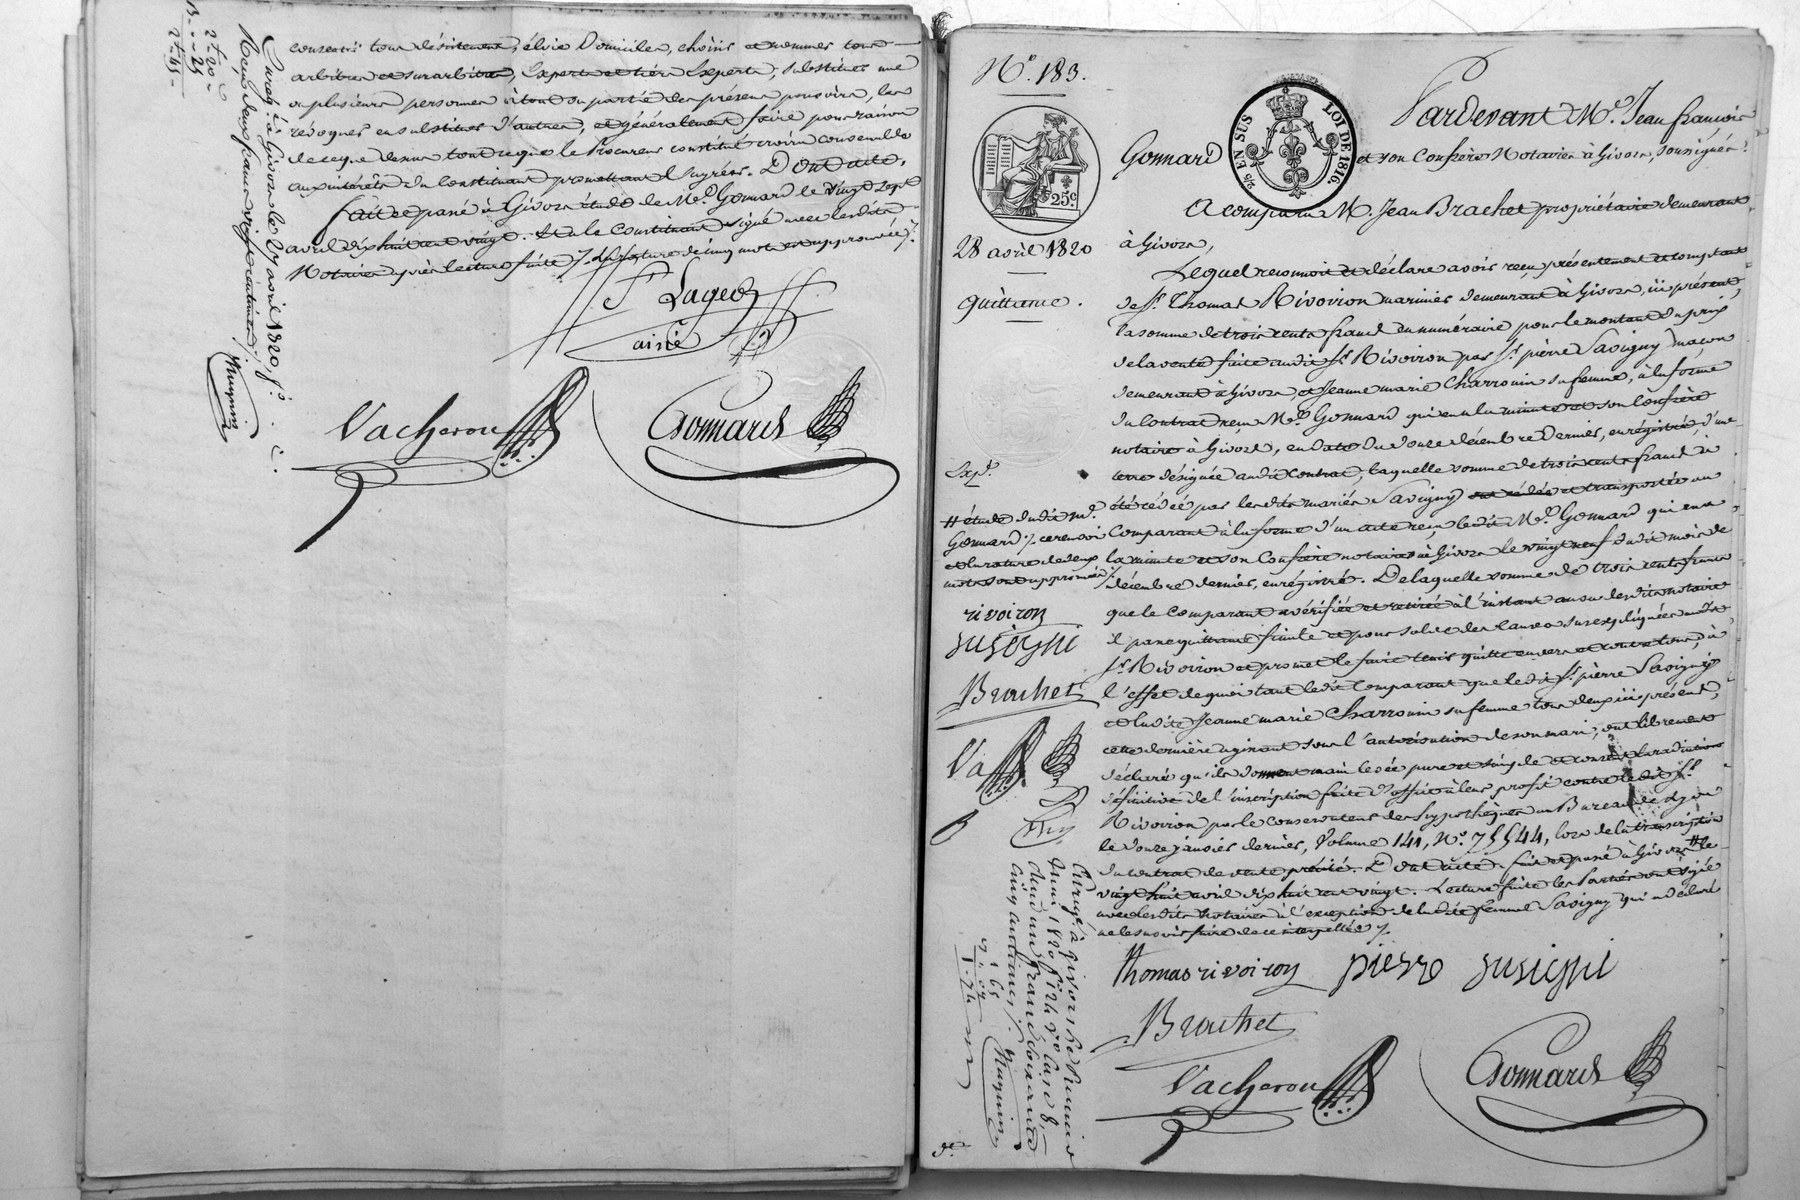 consentir tous désistement, élire Domiciles, choisir et nommer tous
arbitres et surarbitres, Experts et tiers Experts, substituer une
ou plusieurs personnes à tout ou partie des présens pouvoirs, les
révoquer en substituer d'autres, et généralement faire pour raison
de ce que dessus tout ce que le Procureur constitué croira convenable
aux intérêts du Constituant promettant l'agréer. Dont acte,
fait et passé à Givors étude de Me. Gonnard le vingt sept
avril dix huit cent vingt. Et a le Constituant signé avec lesdits
Notaires après lecture faite /. la rature de cinq mots est approuvée /.
Lagers
ainé
Vacheron
Gonnard
Enreg. à Givors le 27 avril 1820, f°.
Reçu deux francs vingt centimes /.
2f 20c
25
2f 45
N°. 183.
25c
2/5 EN SUS
LOI DE 1816.
28 avril 1820
quittance.
Exp.
Pardevant Me. Jean François
Gonnard et son Confrère Notaires à Givors, soussignés.
A comparu M. Jean Brachet propriétaire demeurant
à Givors,
Lequel reconnoit et déclare avoir reçu présentement et comptant
de Sr. Thomas Rivoiron marinier demeurant à Givors, ici présent,
la somme de trois cents francs en numéraire pour le montant du prix
de la vente faite audit Sr. Rivoiron par Sr. pierre Savigny maçon
demeurant à Givors, et Jeanne marie Charrouin sa femme, à la forme
du Contrat reçu Me. Gonnard qui en a la minute et son Confrère
notaire à Givors, en date du douze décembre dernier, enrégistré, d'une
terre désignée audit Contrat, laquelle somme de trois cents francs a
été cédée par lesdits mariés Savigny ont cédée et transportée au
Comparant à la forme d'un acte reçu ledit Me. Gonnard qui en a
la minute et son Confrère notaires à Givors le vingt neuf dudit mois de
décembre dernier, enrégistré. De laquelle somme de trois cents francs
que le Comparant a vérifiée et retirée à l'instant au vu desdits notaires
il passe quittance finale et pour solde des causes sus expliquées audit
Sr. Rivoiron et promet le faire tenir quitte envers et contre tous, à
l'effet de quoi tant ledit Comparant que ledit Sr. pierre Savigny
et ladite Jeanne marie Charrouin sa femme tous deux ici présent,
cette dernière agissant sous l'autorisation de son mari, ont librement
déclaré qu'ils donnent main levée pure et simple et consent la radiation
définitive de l'inscription faite d'office à leur profit contre ledit Sr.
Rivoiron par le conservateur des hypothèques au Bureau de Lyon
le douze janvier dernier, Volume 141, N°. 75544, lors de la transcription
du contrat de vente précité. Dont acte, fait et passé à Givors # le
vingt huit avril dix huit cent vingt. Lecture faite les Parties ont signé
avec lesdits Notaires à l'exception de ladite femme Savigny qui a déclaré
ne le savoir faire de ce interpellée /.
# étude dudit Me.
Gonnard /. ce renvoi
et la rature de deux
mots sont approuvés /.
rivoiron
susigni
Brachet
Va
thomas rivoiron pierro susigni
Brachet
Vacheron
Gonnard
Enregé. à Givors le
mai 1820 f° 124 v° case 8,
reçu un franc soixante
cinq centimes /.
1. 65